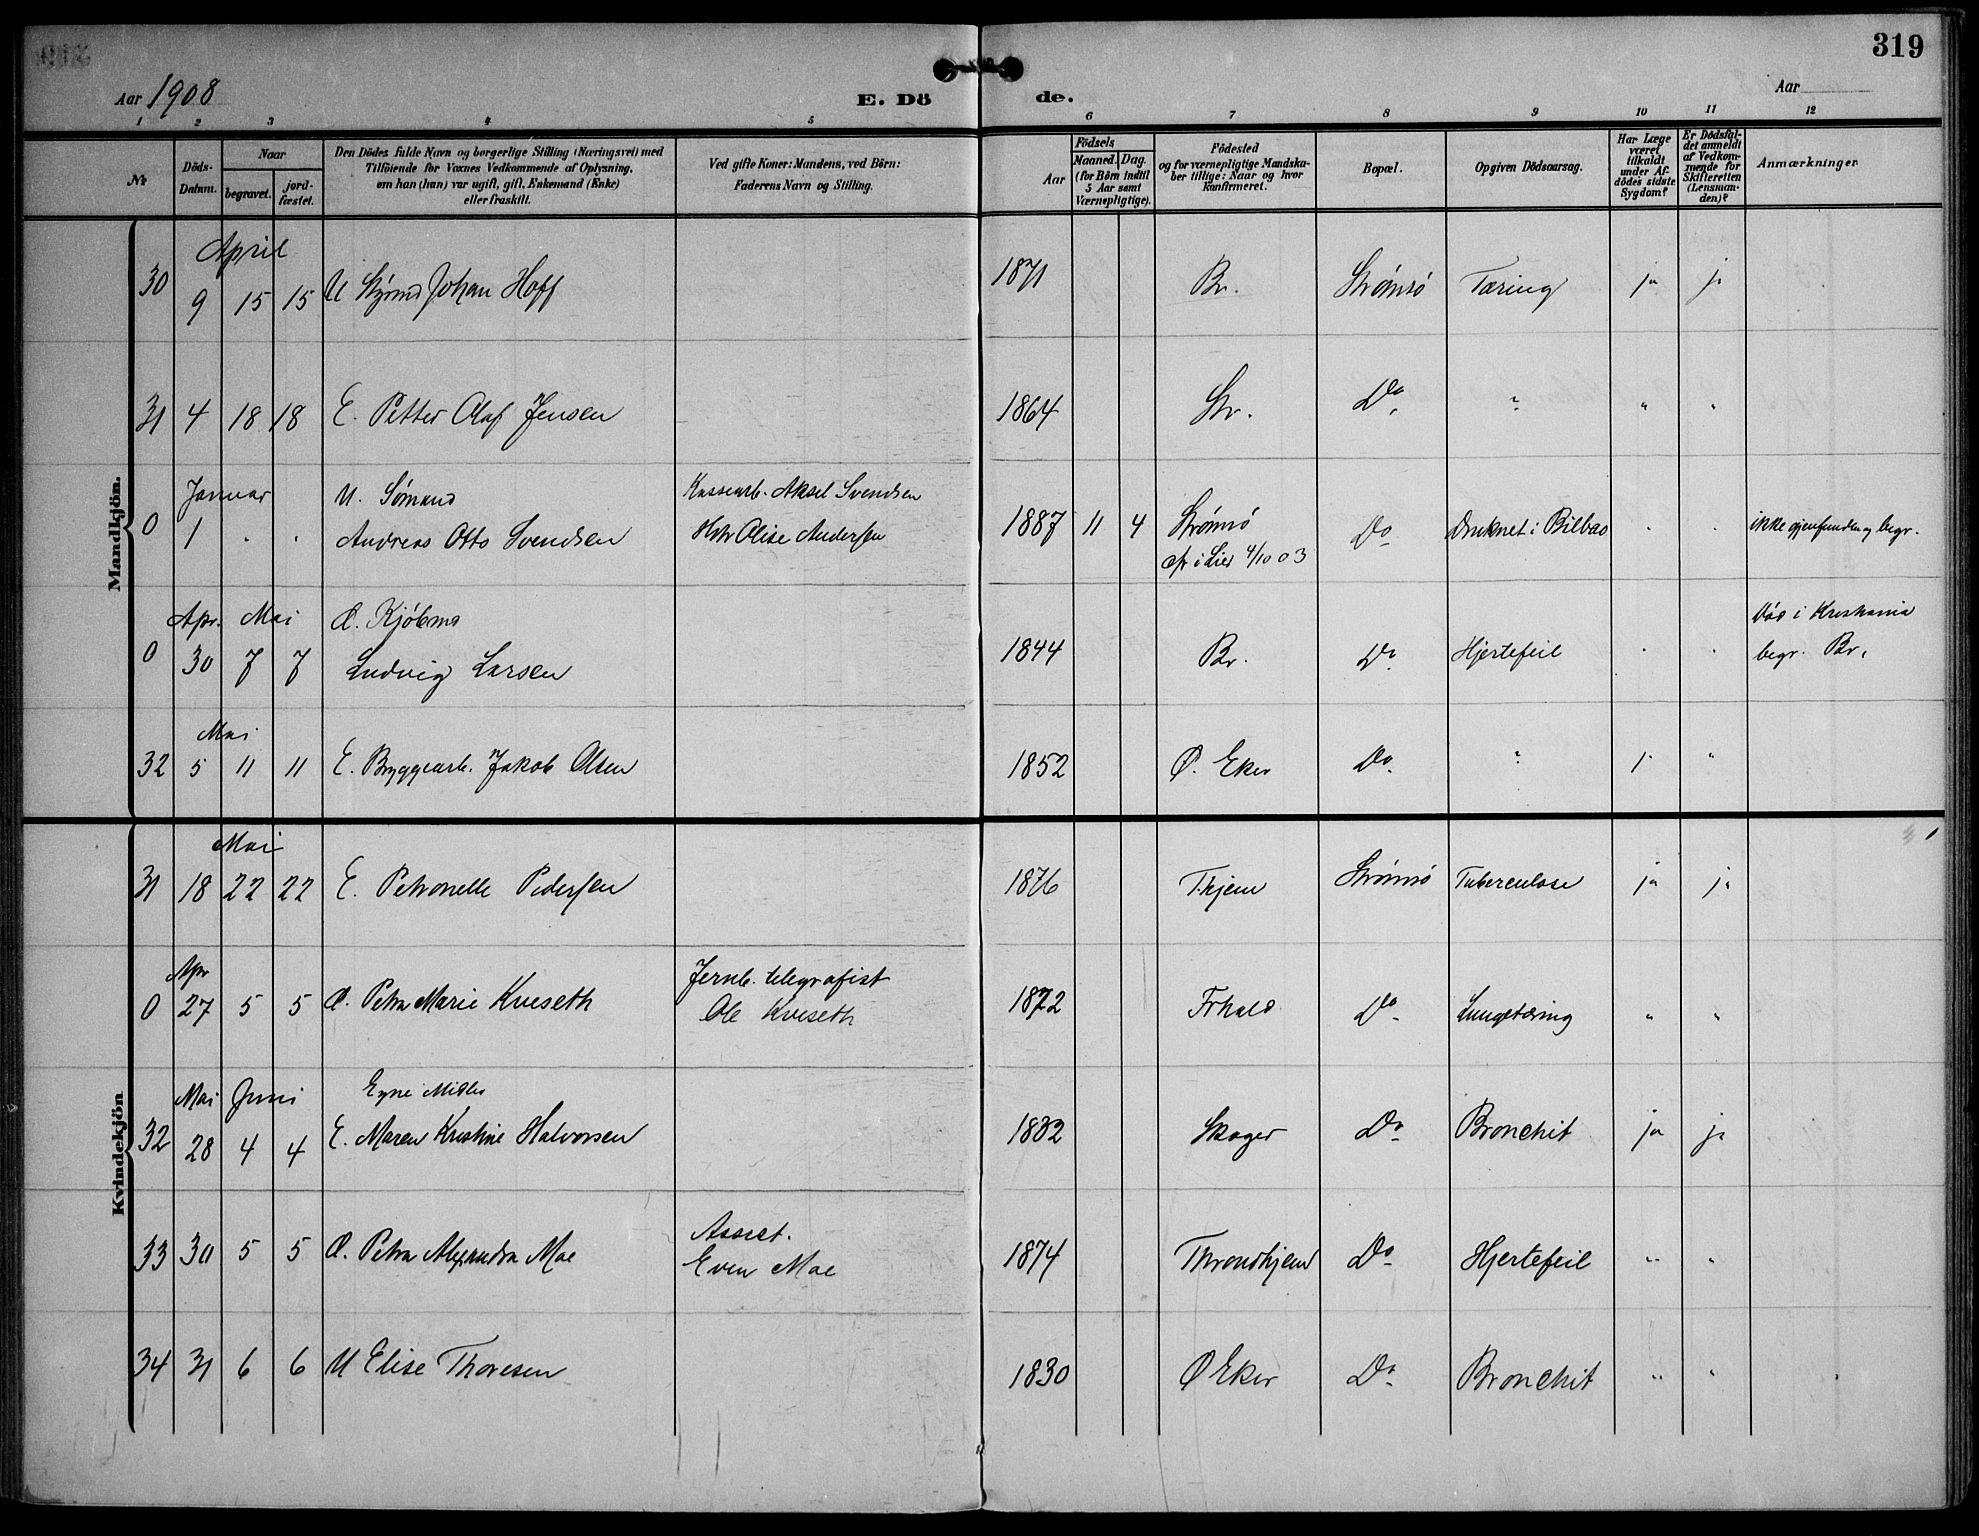 319
Aar 1908
E. Dö
de.
Aar
1 2 3 4 5 6 7 8 9 10 11 12
№
Döds-
Datum.
Naar
begravet.
jord-
fæstet.
Den Dödes fulde Navn og borgerlige Stilling (Næringsvei) med
Tilföiende for Voxnes Vedkommende af Oplysning,
om han (hun) var ugift, gift, Enkemand (Enke)
eller fraskilt.
Ved gifte Koner: Mandens, ved Börn:
Faderens Navn og Stilling.
Födsels
Aar
Maaned. Dag.
(for Börn indtil
5 Aar samt
Værnepligtige).
Födested
og for værnepligtige Mandska-
ber tillige: Naar og hvor
konfirmeret.
Bopæl.
Opgiven Dödsaarsag.
Har Læge
været
tilkaldt
under Af-
dödes sidste
Sygdom?
Er Dödsfal-
det anmeldt
af Vedkom-
mende for
Skifteretten
(Lensman-
den)?
Anmærkninger
Mandkjön.
April
30 9 15 15 U Styrmd Johan Hoff 1871 Br. Strømsö Tæring ja ja
31 4 18 18 E. Petter Olaf Jensen 1864 Str. Do " " "
Januar
U. Sömand
Kassearb. Aksel Svendsen
0 1 " " Andreas Otto Svendsen Hstr Elise Andersen 1887 11 4 Strømsö Do Druknet i Bilbao " " ikke gjenfunden og begr.
cf. i Lier 4/10 03
Apr. Mai
G. Kjöbmd
Död i Kristiania
0 30 7 7 Ludvig Larsen 1844 Br. Do Hjertefeil " " begr. Br.
Mai
32 5 11 11 E. Byggearb. Jakob Olsen 1852 Ø. Eker Do " j "
Kvindekjön
Mai
31 18 22 22 E. Petronelle Pedersen 1876 Thjem Strømsö Tuberculose ja ja
Apr
Jernb. telegrafist
0 27 5 5 G. Petra Marie Kveseth Ole Kveseth 1872 Frhald Do Lungetæring " "
Mai Juni
Egne Midler
32 28 4 4 E. Maren Kristine Halvorsen 1832 Skoger Do Bronchit ja ja
Assist.
33 30 5 5 G. Petra Alexandra Moe Even Moe 1874 Throndhjem Do Hjertefeil " "
34 31 6 6 U Elise Thoresen 1830 Ø Eker Do Bronchit " "